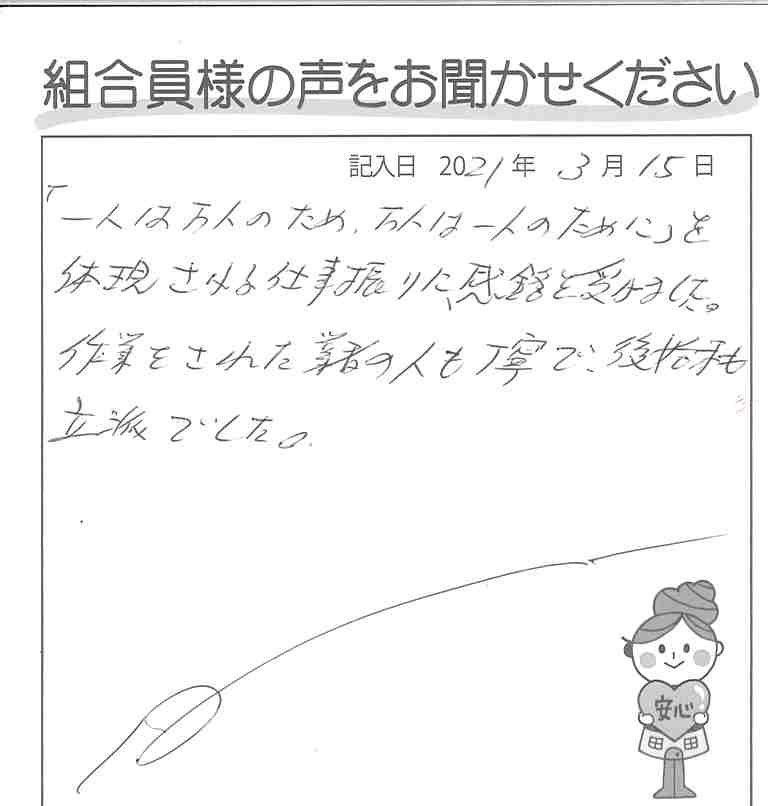 組合員様の声をお聞かせください
記入日 2021年 3月 15日
「一人は万人のため、万人は一人のために」を
体現させる仕事振りに、感銘を受けました。
作業をされた業者の人も丁寧で、後始末も
立派でした。
安心